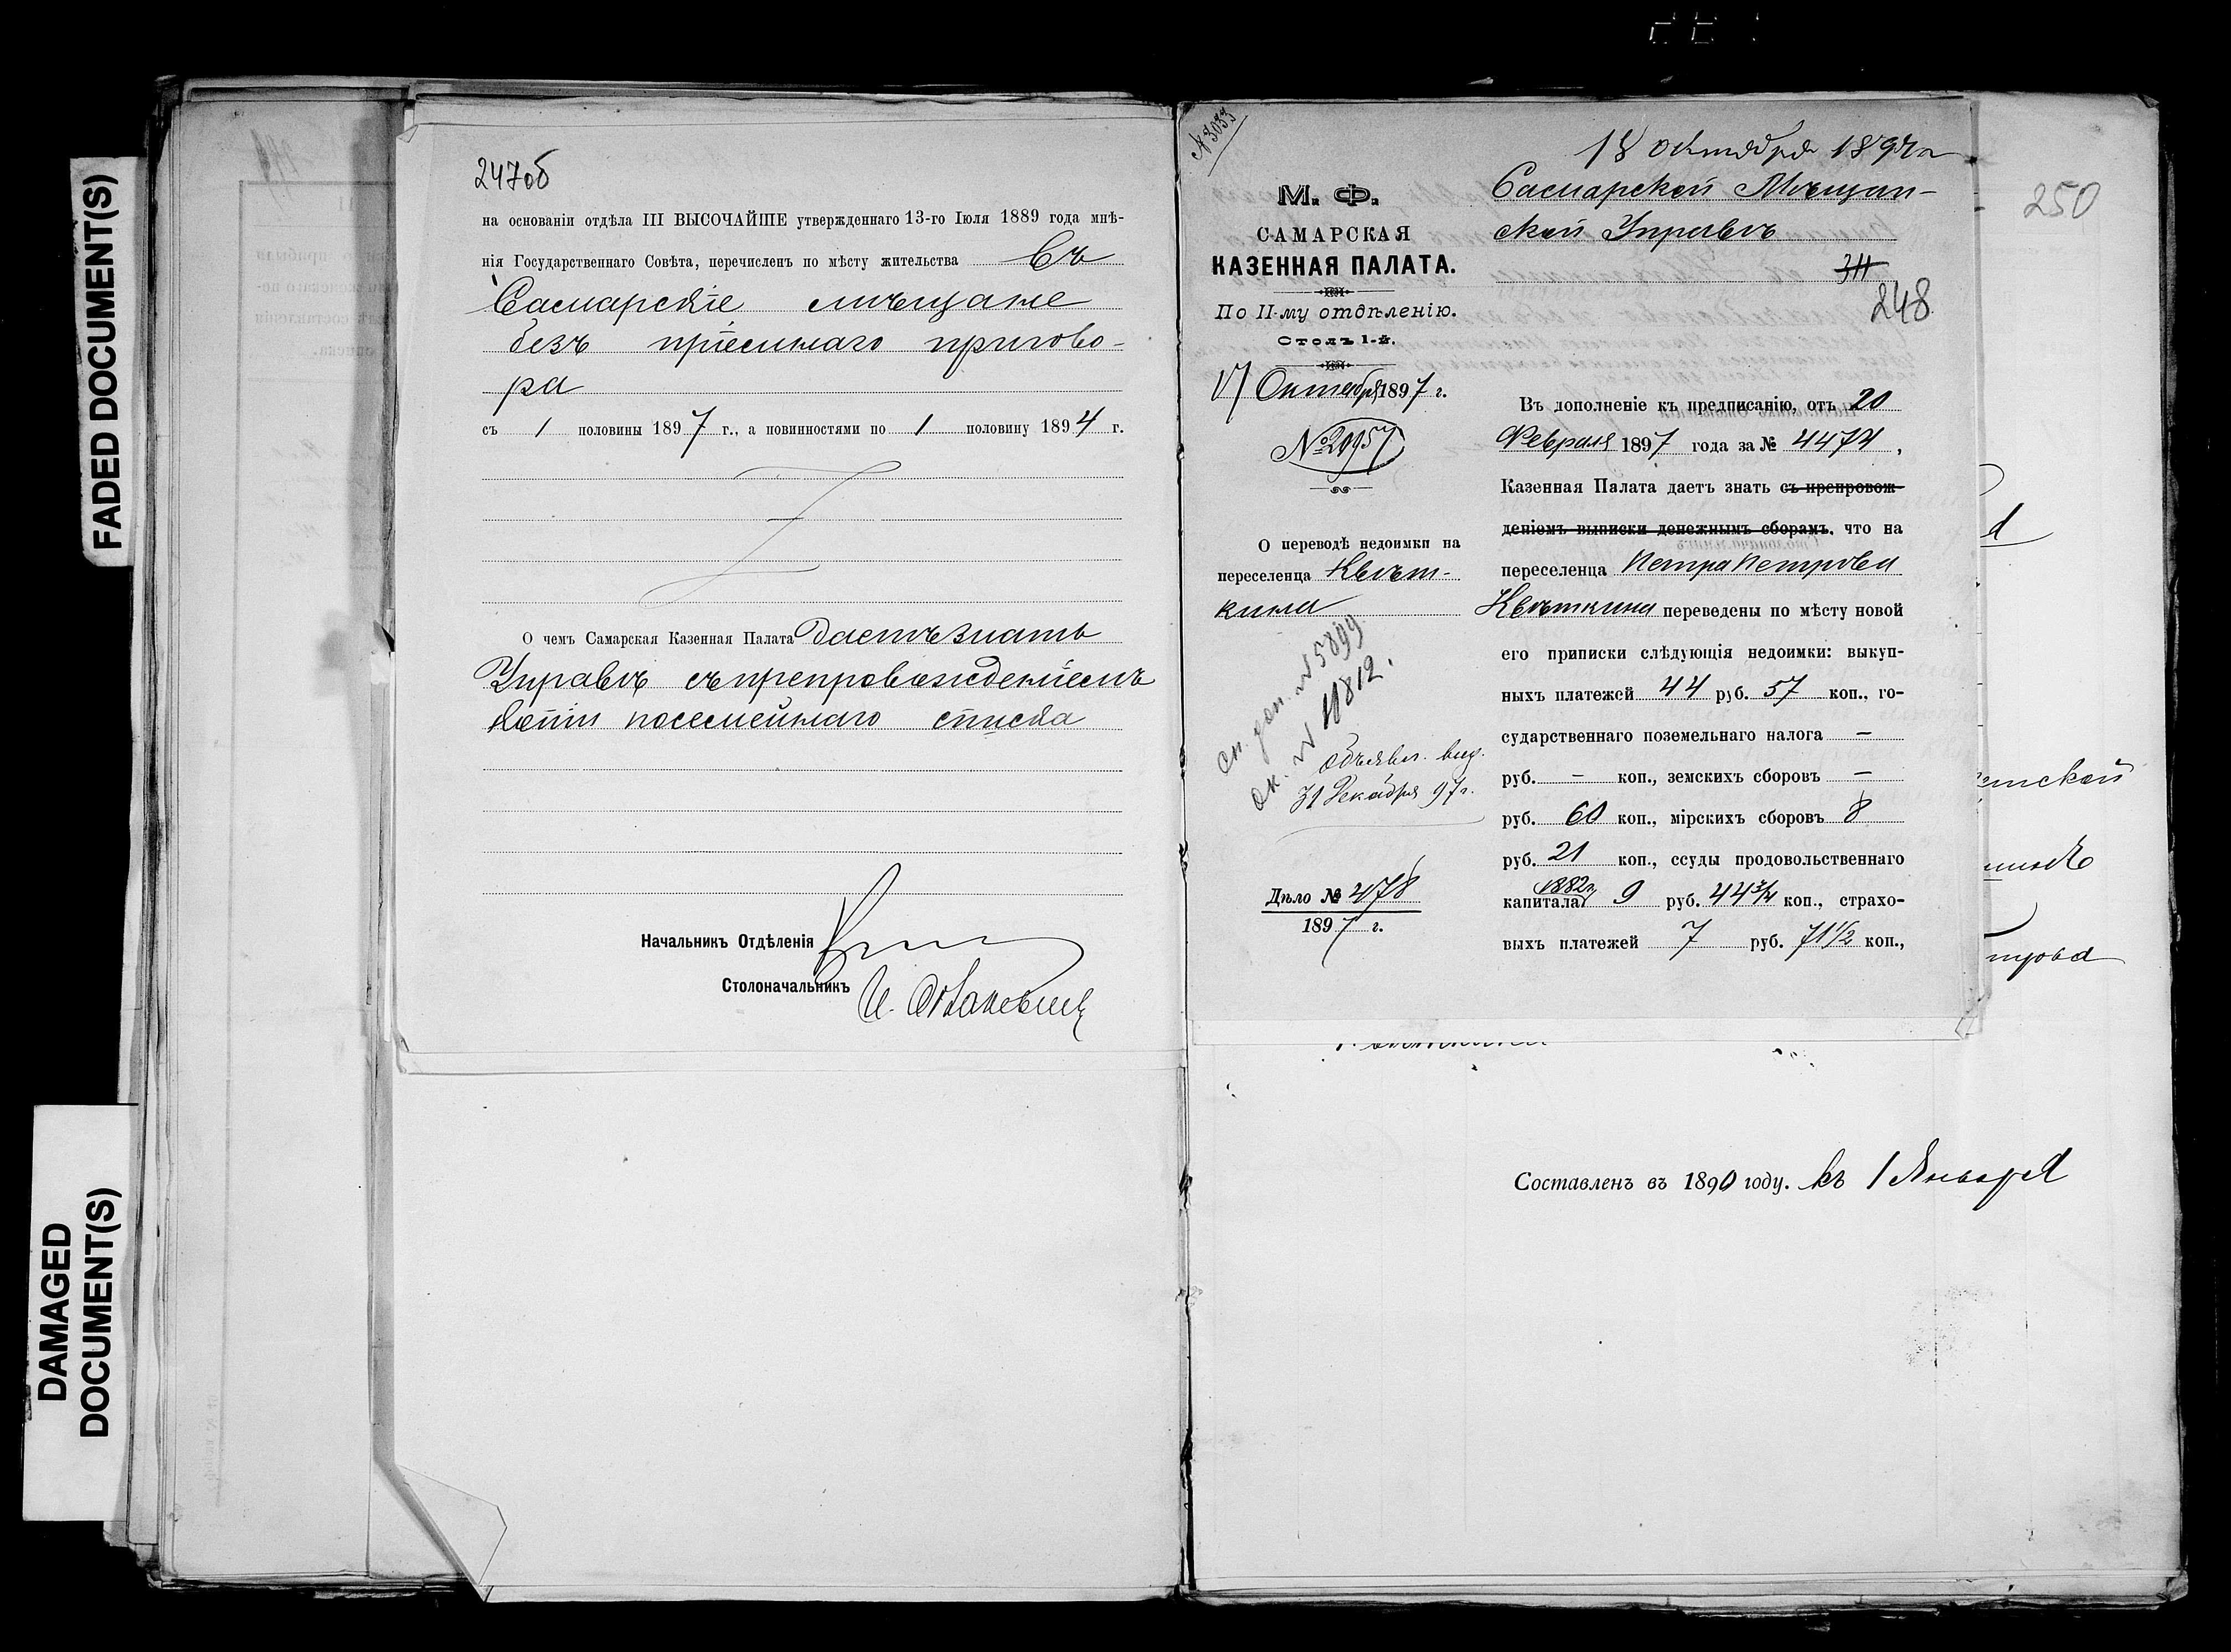 FADED DOCUMENT(S)
DAMAGED
DOCUMENT(S)
247об
на основаніи отдѣла III ВЫСОЧАЙШЕ утвержденнаго 13-го Іюля 1889 года мнѣ-
нія Государственнаго Совѣта, перечисленъ по мѣсту жительства Въ
Самарскіе мѣщане
безъ пріемнаго пригово-
ра
съ 1 половины 1897 г., а повинностями по 1 половину 1894 г.
О чемъ Самарская Казенная Палата даетъ знать
Управѣ съ препровожденіемъ
копіи посемейнаго списка
Начальникъ Отдѣленія
Столоначальникъ
№ 3033
М. Ф.
САМАРСКАЯ
КАЗЕННАЯ ПАЛАТА.
По II-му отдѣленію.
Столъ 1-й.
17 Октября 1897 г.
№ 20957
О переводѣ недоимки на
переселенца Квѣт-
кина
№ 5899
№ 11812.
Объявл. выд.
31 Декабря 97 г.
Дѣло № 478
1897 г.
18 октября 1897 г.
Самарской Мѣщан-
ской Управѣ
311
248
Въ дополненіе къ предписанію, отъ 20
Февраля 1897 года за № 4474,
Казенная Палата даетъ знать съ препровож-
деніемъ выписки денежнымъ сборамъ, что на
переселенца Петра Петрова
Квѣткина переведены по мѣсту новой
его приписки слѣдующія недоимки: выкуп-
ныхъ платежей 44 руб. 57 коп., го-
сударственнаго поземельнаго налога —
руб. — коп., земскихъ сборовъ —
руб. 60 коп., мірскихъ сборовъ 8
руб. 21 коп., ссуды продовольственнаго
1882 г.
капитала 9 руб. 44 3/4 коп., страхо-
выхъ платежей 7 руб. 71 1/2 коп.,
250
Составленъ въ 1890 году. къ 1 Января